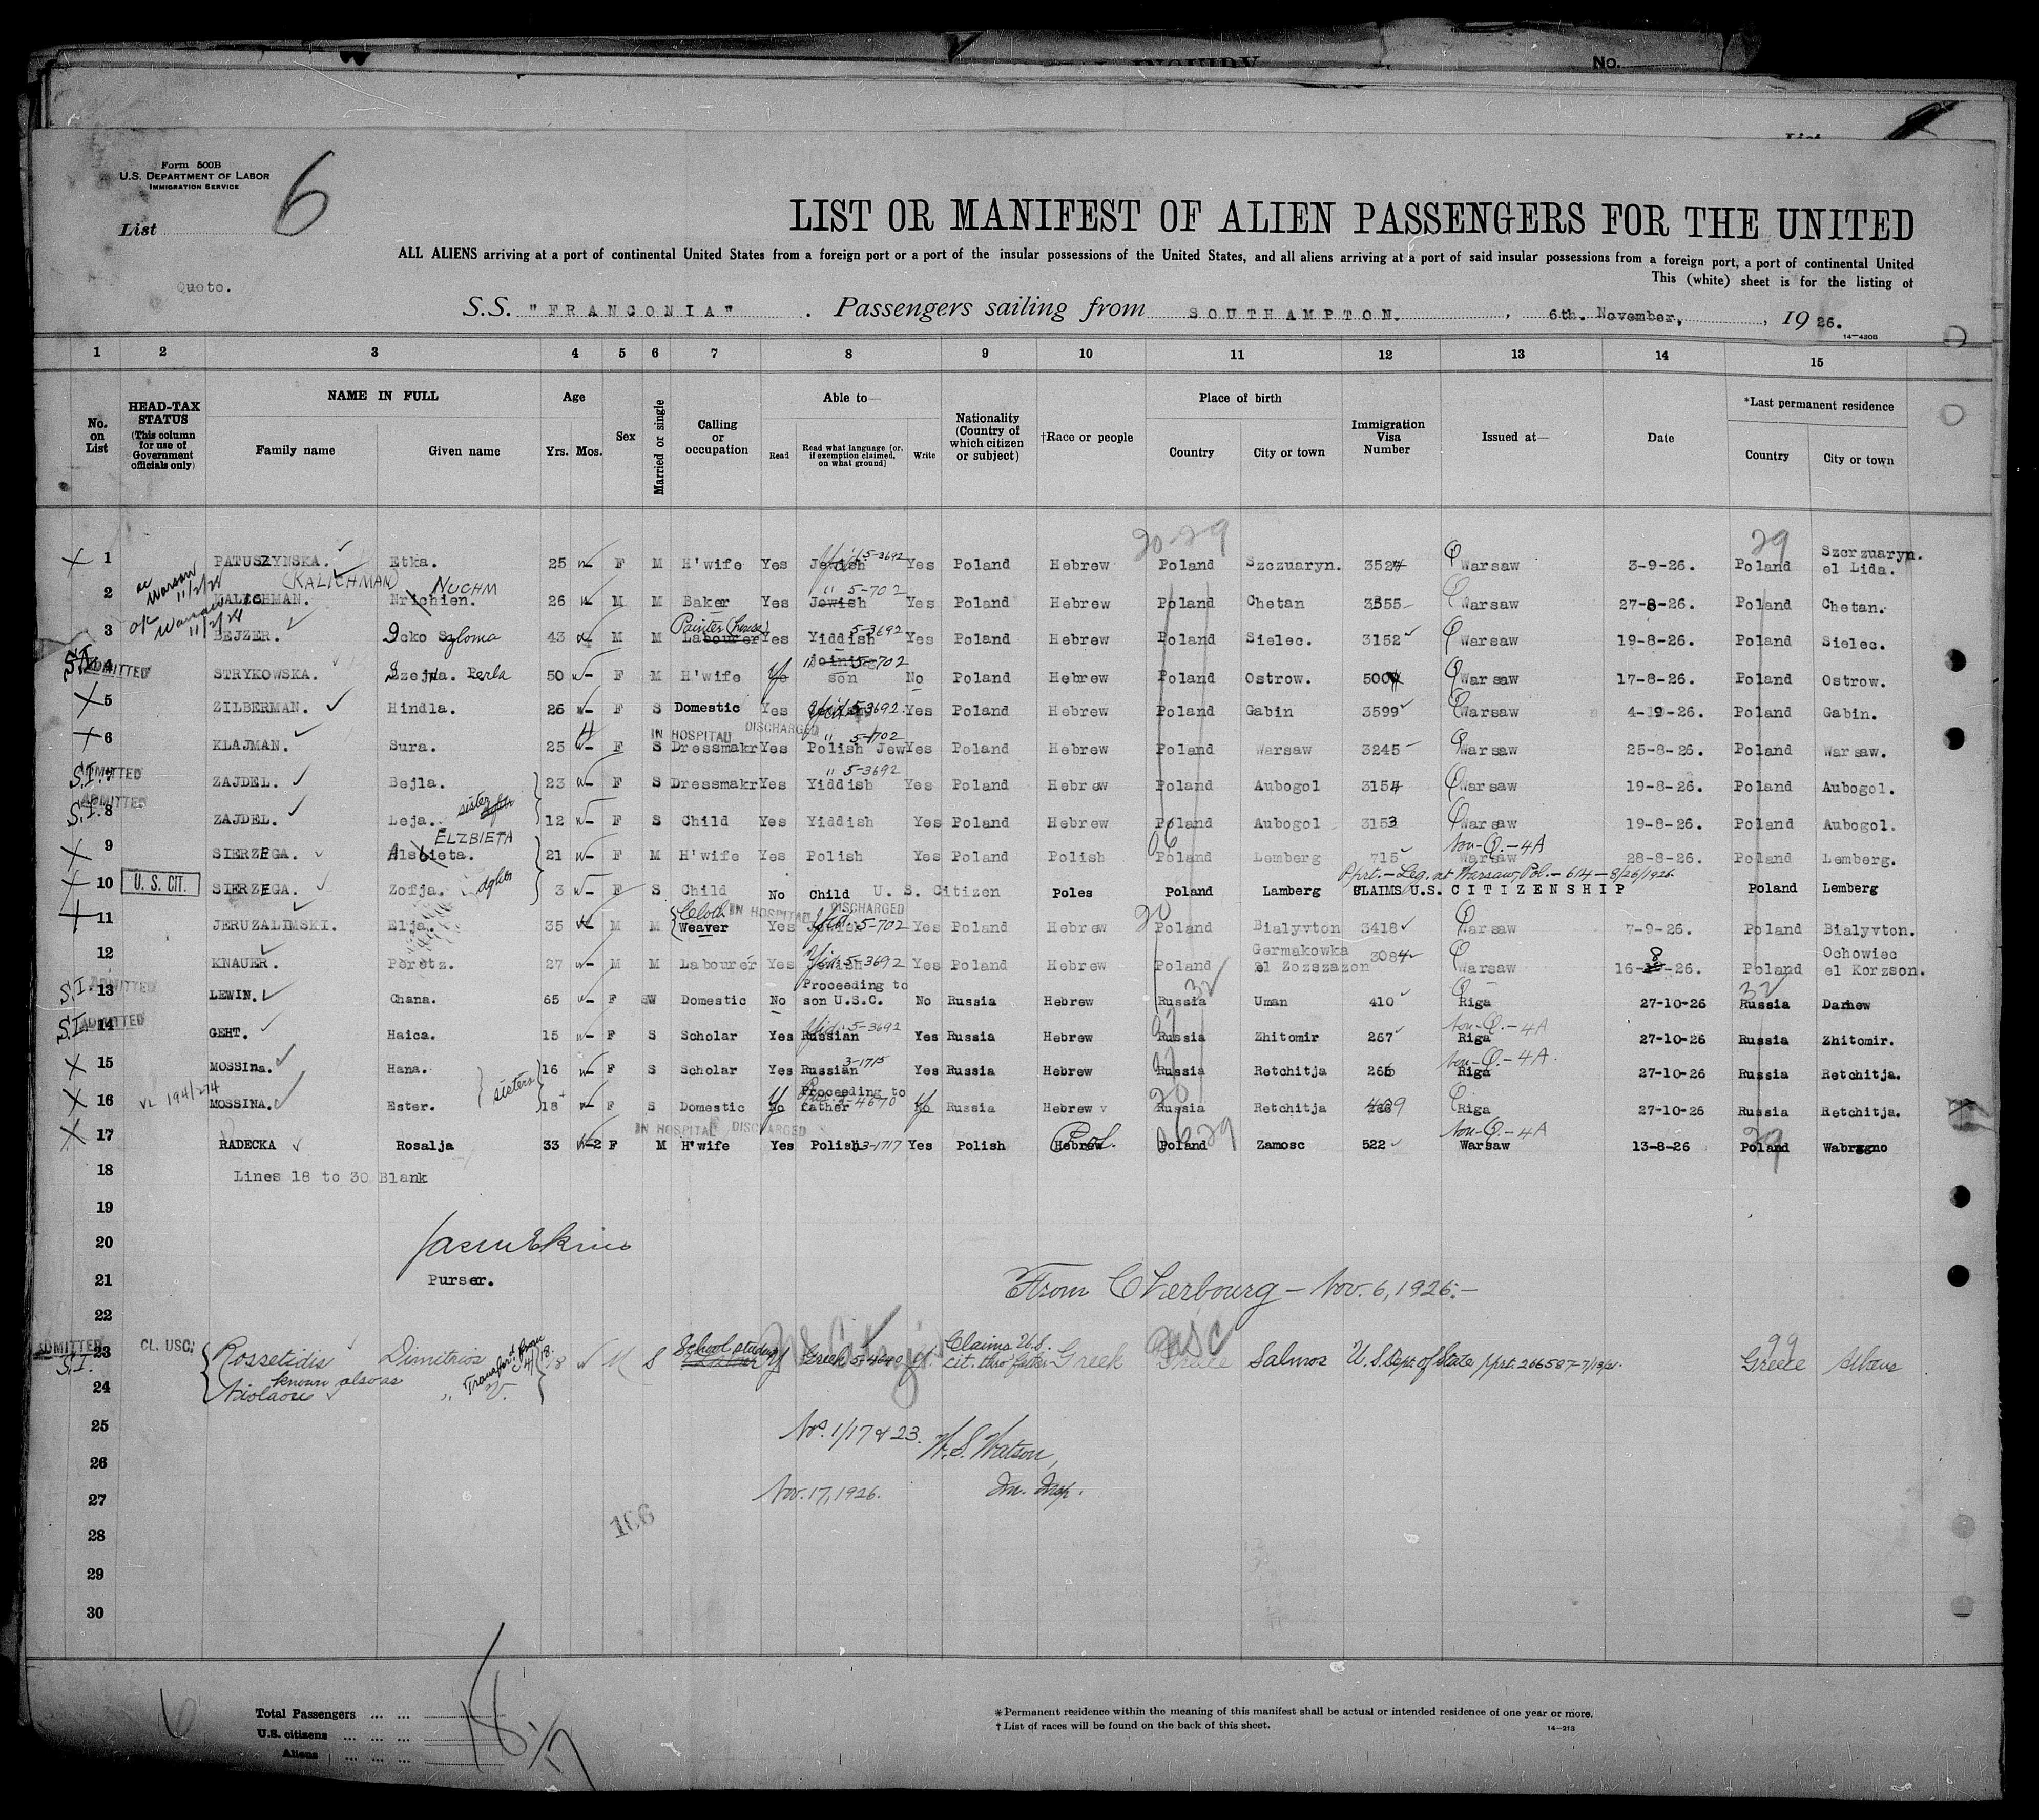 AL INQUIRY
No.
List
Form 500B
U.S. DEPARTMENT OF LABOR
IMMIGRATION SERVICE
List 6
LIST OR MANIFEST OF ALIEN PASSENGERS FOR THE UNITED
ALL ALIENS arriving at a port of continental United States from a foreign port or a port of the insular possessions of the United States, and all aliens arriving at a port of said insular possessions from a foreign port, a port of continental United
This (white) sheet is for the listing of
Quoto.
S.S. "FRANCONIA" . Passengers sailing from SOUTHAMPTON. , 6th. November, , 19 26.
14—430B
1 2 3 4 5 6 7 8 9 10 11 12 13 14 15
No. on List
HEAD-TAX STATUS (This column for use of Government officials only)
NAME IN FULL
Family name Given name
Age
Yrs. Mos.
Sex
Married or single
Calling or occupation
Able to—
Read Read what language [or, if exemption claimed, on what ground] Write
Nationality (Country of which citizen or subject)
†Race or people
Place of birth
Country City or town
Immigration Visa Number
Issued at—
Date
*Last permanent residence
Country City or town
20-29 29
X 1 PATUSZYNSKA. Etka. 25 F M H'wife Yes Jewish 5-3692 Yes Poland Hebrew Poland Szczuaryn. 3524 Warsaw 3-9-26. Poland Szczuaryn. el Lida.
(KALICHMAN) NUCHM
Warsaw 11/2/28
2 KALICHMAN. Nrichien. 26 M M Baker Yes Jewish " 5-702 Yes Poland Hebrew Poland Chetan 3555 Warsaw 27-8-26. Poland Chetan.
OK Warsaw 11/2/28
3 BEJZER. Icko Szloma 43 M M Labourer Painter (house) Yes Yiddish 5-3692 Yes Poland Hebrew Poland Sielec. 3152 Warsaw 19-8-26. Poland Sielec.
S.I. ADMITTED 4 STRYKOWSKA. Perla 50 F M H'wife " 5-702 son No Poland Hebrew Poland Ostrow. 500 Warsaw 17-8-26. Poland Ostrow.
X 5 ZILBERMAN. Hindla. 26 F S Domestic Yes 5-3692. Yes Poland Hebrew Poland Gabin 3599 Warsaw 4-9-26. Poland Gabin.
IN HOSPITAL DISCHARGED
X 6 KLAJMAN. Sura. 25 F S Dressmakr Yes Polish Jew " 5-1702 Yes Poland Hebrew Poland Warsaw 3245 Warsaw 25-8-26. Poland Warsaw.
S.I. ADMITTED 7 ZAJDEL. Bejla. 23 F S Dressmakr Yes Yiddish " 5-3692 Yes Poland Hebrew Poland Aubogol 3154 Warsaw 19-8-26. Poland Aubogol.
S.I. ADMITTED 8 ZAJDEL. Leja. sister 12 F S Child Yes Yiddish Yes Poland Hebrew Poland Aubogol 3153 Warsaw 19-8-26. Poland Aubogol.
ELZBIETA 06 Non-Q.-4A
X 9 SIERZEGA. Alsbieta. 21 F M H'wife Yes Polish Yes Poland Polish Poland Lemberg 715 Warsaw 28-8-26. Poland Lemberg.
Pprt.-Leg. at Warsaw, Pol.-614-8/26/1926
X 10 U. S. CIT. SIERZEGA. Zofja. dghtr 3 F S Child No Child U. S. Citizen Poles Poland Lamberg CLAIMS U.S. CITIZENSHIP Poland Lemberg
IN HOSPITAL DISCHARGED
X 11 JERUZALIMSKI. Elja. 35 M M Cloth Weaver Yes Jewish 5-702 Yes Poland Hebrew 20 Poland Bialyvton 3418 Warsaw 7-9-26. Poland Bialyvton.
12 KNAUER. Peretz. 27 M M Labourer Yes Jewish 5-3692 Yes Poland Hebrew Poland Germakowka el Zozszazon 3084 Warsaw 16-8-26. Poland Ochowiec el Korzson.
S.I. ADMITTED 13 LEWIN. Chana. 65 F W Domestic No Proceeding to son U.S.C. No Russia Hebrew 32 Russia Uman 410 Riga 27-10-26 32 Russia Darnew
S.I. ADMITTED 14 GEHT. Haica. 15 F S Scholar Yes Russian Yid. 5-3692 Yes Russia Hebrew Russia Zhitomir 267 Non-Q.-4A Riga 27-10-26 Russia Zhitomir.
X 15 MOSSINa. Hana. 16 F S Scholar Yes Russian 3-1715 Yes Russia Hebrew Russia Retchitja 266 Non-Q.-4A. Riga 27-10-26 Russia Retchitja.
sisters
X 16 194/274 MOSSINA. Ester. 18 F S Domestic No Proceeding to father 3-4670 No Russia Hebrew Russia Retchitja 409 Riga 27-10-26 Russia Retchitja.
IN HOSPITAL DISCHARGED
X 17 RADECKA Rosalja 33 F M H'wife Yes Polish 3-1717 Yes Polish Hebrew Pol. Poland Zamosc 522 Non-Q.-4A Warsaw 13-8-26 29 Poland Wabrzgno
18 Lines 18 to 30 Blank
19
20
21 Purser.
From Cherbourg - Nov. 6, 1926.-
22
ADMITTED S.I. 23 CL. USC. Rossetidis Dimitrios 18 M S School student Y Greek 5-4640 Y Claims U.S. cit. thro' father Greek USC Greece Salmos U.S. Dept. of State pprt. 266587-7/13/26. 99 Greece
known also as
24 Nicolaou " Transfd from
25 Nos. 1/17 & 23. W.S. Watson,
26 Im. Insp.
27 Nov. 17, 1926.
106
28
29
30
6
Total Passengers ... ... 18
U.S. citizens ... ... ...
Aliens ... ... ... 17
*Permanent residence within the meaning of this manifest shall be actual or intended residence of one year or more.
†List of races will be found on the back of this sheet.
14—213